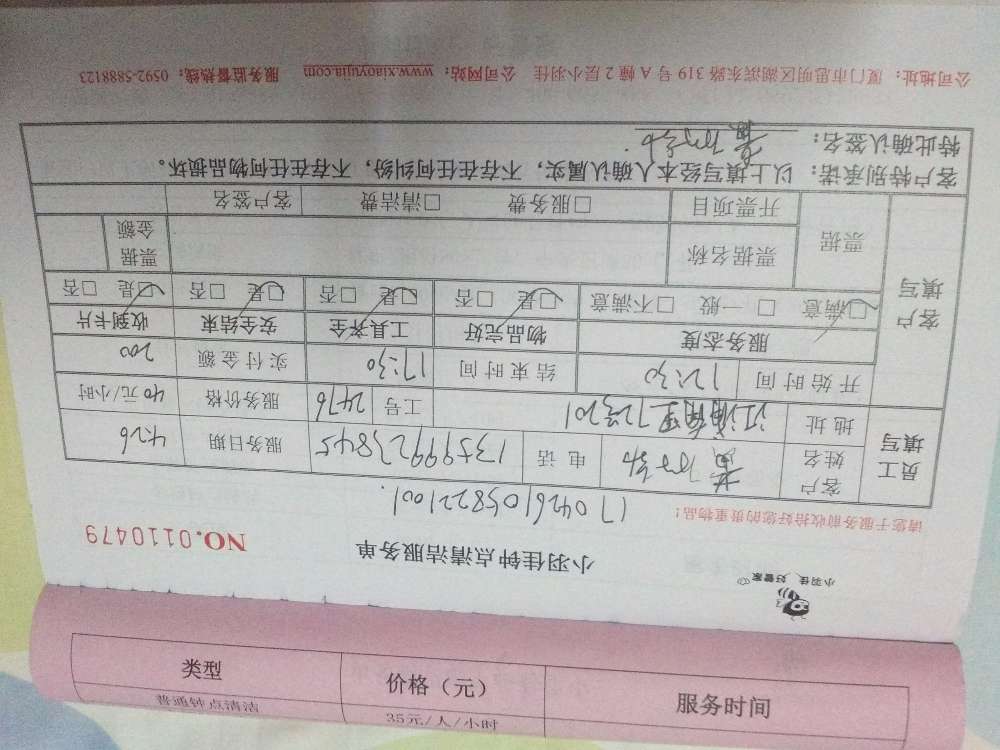 小羽佳 好管家
小羽佳钟点清洁服务单
NO.0110479
请您于服务前收拾好您的贵重物品!
1704261058221001
员工填写
客户姓名
电话 13599923845
服务日期 4.26
地址 72号201
工号 2476
服务价格 40元/小时
开始时间 12:30
结束时间 17:30
实付金额 200
客户填写
服务态度 物品完好 工具齐全 安全结束 收到卡片
满意 □一般 □不满意 □是 □否 □是 □否 □是 □否 □是 □否
票据 票据名称 票据金额
开票项目 □服务费 □清洁费 客户签名
客户特别承诺:以上填写经本人确认属实,不存在任何纠纷,不存在任何物品损坏。
特此确认签名:
公司地址:厦门市思明区湖滨东路319号A幢2层小羽佳 公司网站:www.xiaoyujia.com 服务监督热线:0592-5888123
类型 价格(元) 服务时间
普通钟点清洁 35元/人/小时